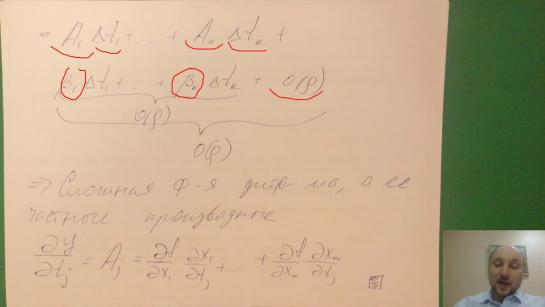 = A₁ Δt₁ + ... + Aₖ Δtₖ +
β₁ Δt₁ + ... + βₖ Δtₖ + o(ρ)
o(ρ)
o(ρ)
=> Сложная ф-я диф-ма, а ее
частные производные
∂y/∂tⱼ = Aⱼ = ∂f/∂x₁ ∂x₁/∂tⱼ + ... + ∂f/∂xₘ ∂xₘ/∂tⱼ